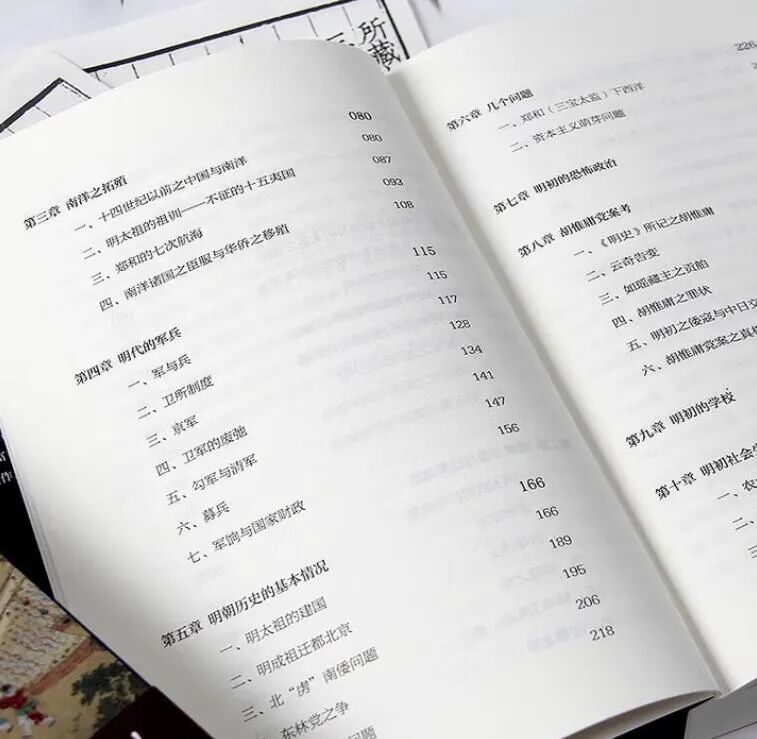 所藏
第三章 南洋之拓殖 080
一、十四世纪以前之中国与南洋 080
二、明太祖的祖训——不征的十五夷国 087
三、郑和的七次航海 093
四、南洋诸国之臣服与华侨之移殖 108
第四章 明代的军兵 115
一、军与兵 115
二、卫所制度 117
三、京军 128
四、卫军的废弛 134
五、勾军与清军 141
六、募兵 147
七、军饷与国家财政 156
第五章 明朝历史的基本情况 166
一、明太祖的建国 166
二、明成祖迁都北京 189
三、北“虏”南倭问题 195
东林党之争 206
问题 218
第六章 几个问题 226
一、郑和（三宝太监）下西洋
二、资本主义萌芽问题
第七章 明初的恐怖政治
第八章 胡惟庸党案考
一、《明史》所记之胡惟庸
二、云奇告变
三、如瑶藏主之贡舶
四、胡惟庸之罪状
五、明初之倭寇与中日交
六、胡惟庸党案之真相
第九章 明初的学校
第十章 明初社会
一、农
二、
三
作